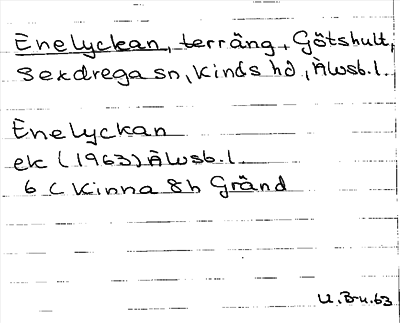 Enelyckan, terräng, Götshult,
Sexdrega sn, Kinds hd, Älvsb. l.
Enelyckan
ek (1963) Älvsb. l.
6 C Kinna 8h Gränd
U. Bru. 63